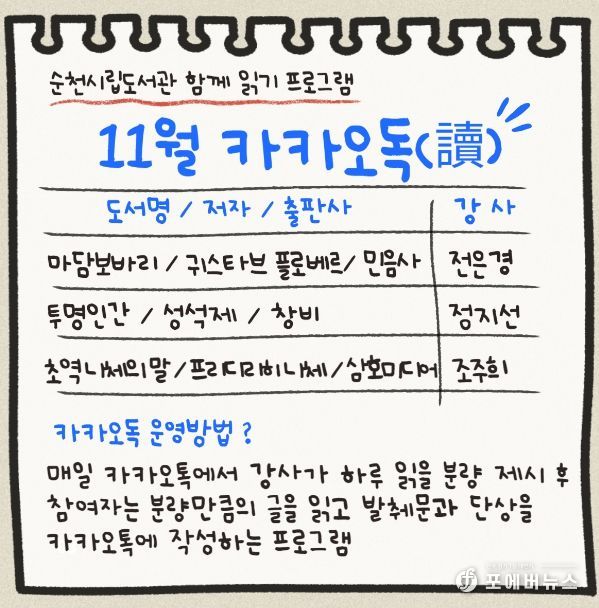 순천시립도서관 함께 읽기 프로그램
11월 카카오독(讀)
도서명 / 저자 / 출판사 강사
마담보바리 / 귀스타브 플로베르 / 민음사 전은경
투명인간 / 성석제 / 창비 점지선
초역 니체의 말 / 프리디리히 니체 / 삼호미디어 조주희
카카오독 운영방법 ?
매일 카카오톡에서 강사가 하루 읽을 분량 제시 후
참여자는 분량만큼의 글을 읽고 발췌문과 단상을
카카오톡에 작성하는 프로그램
포에버뉴스